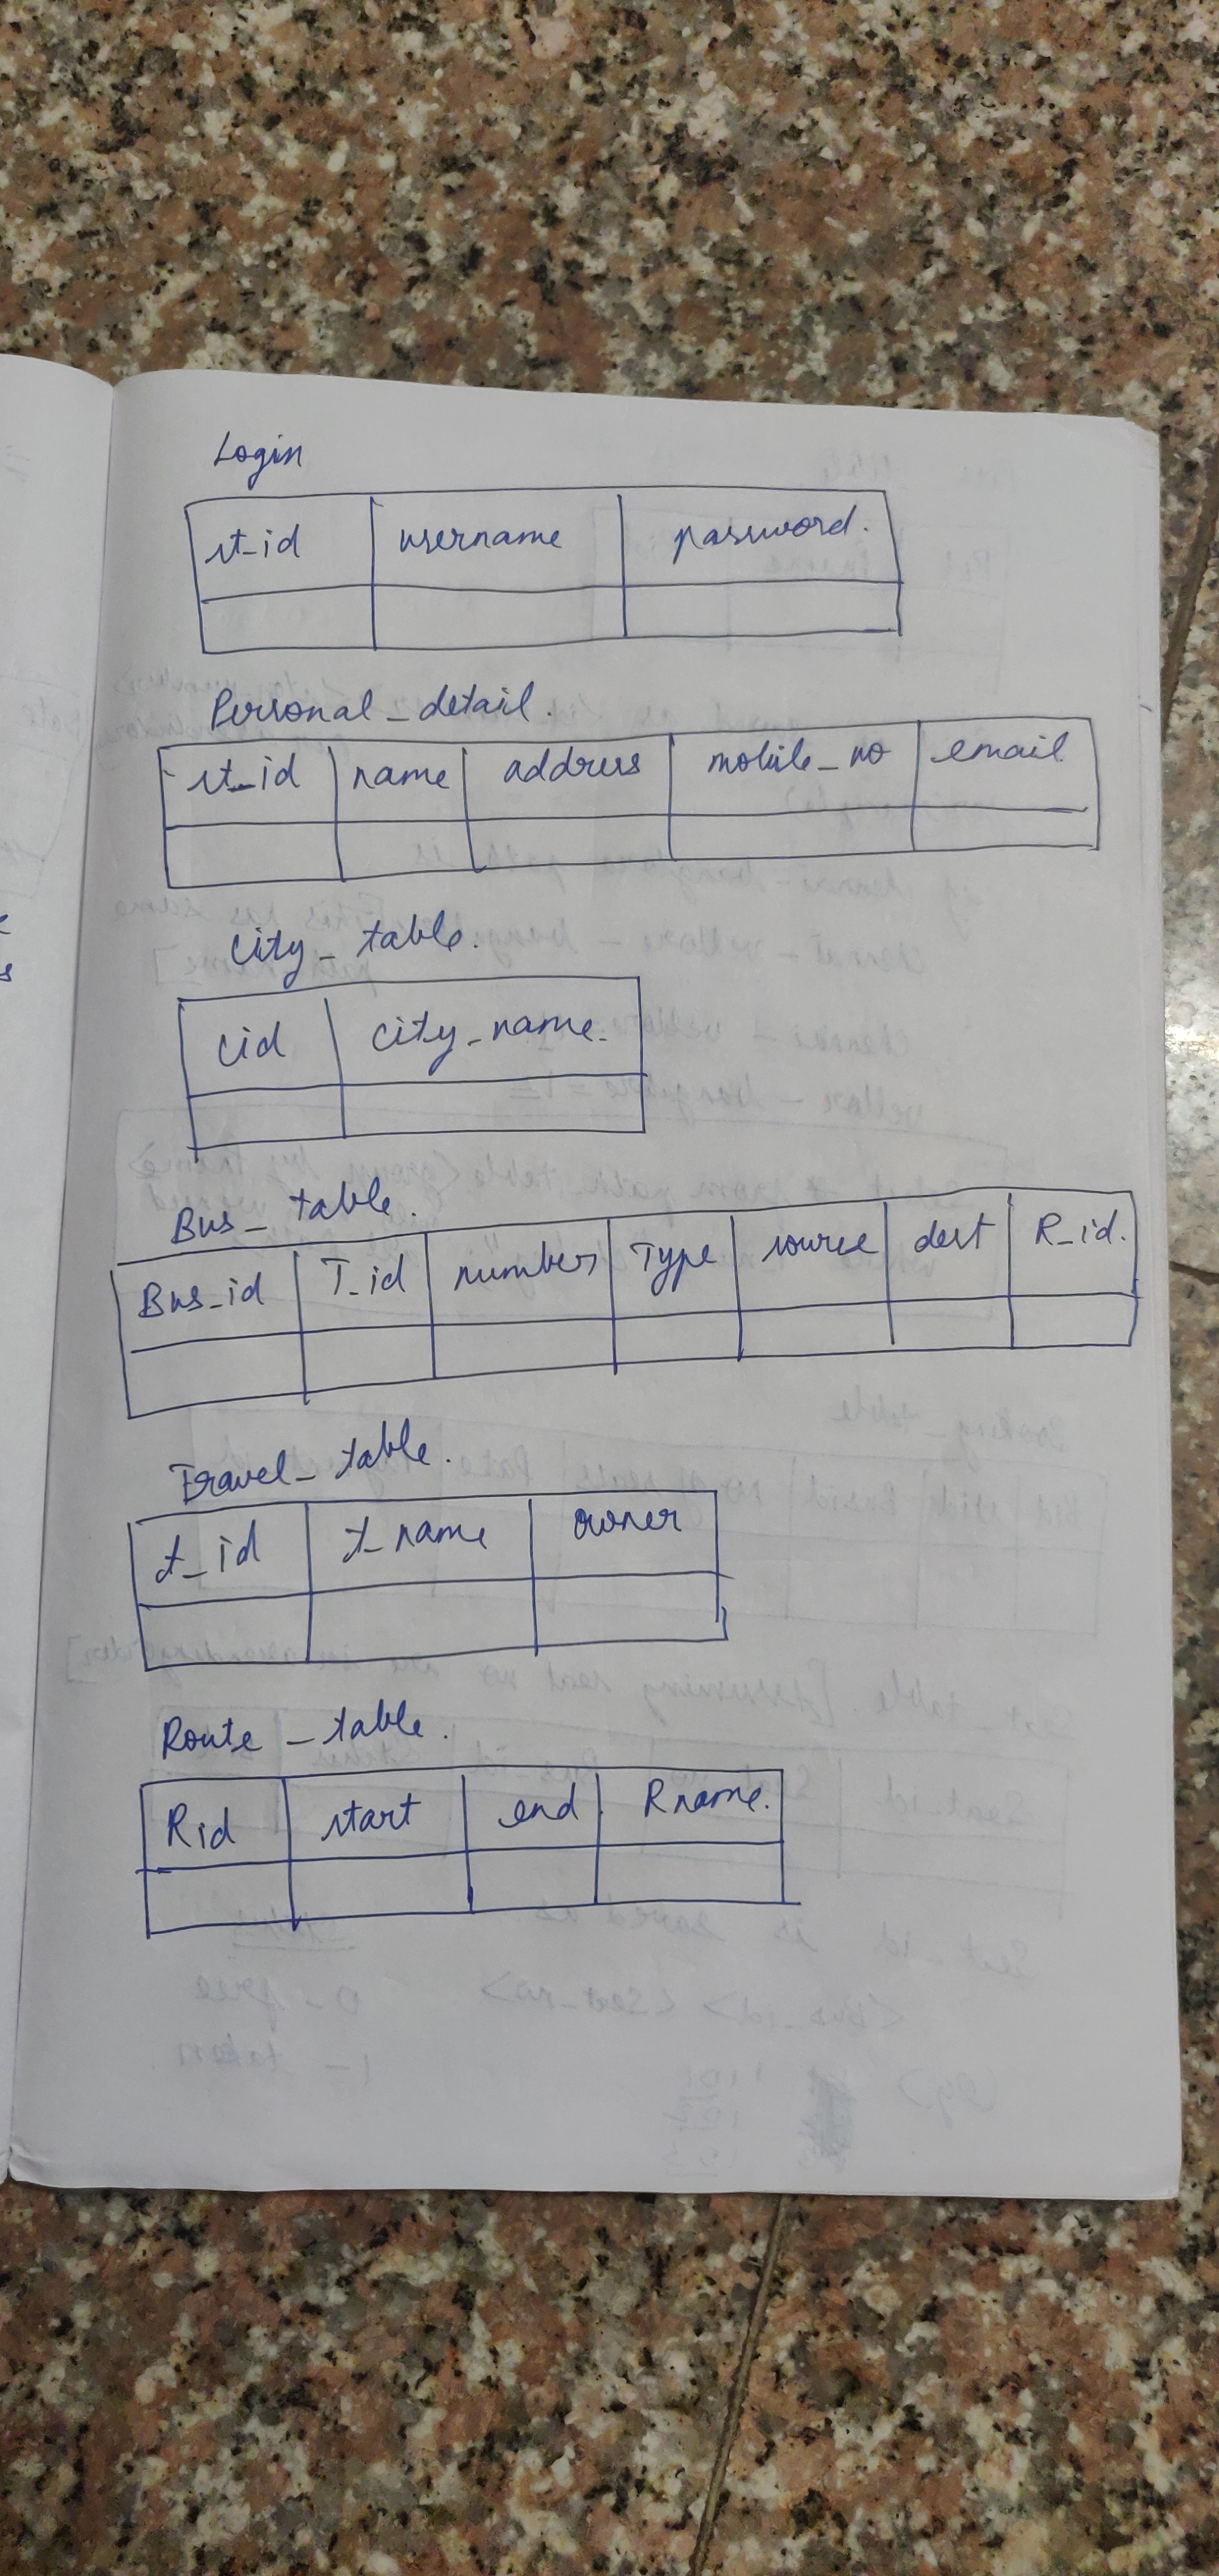 Login
st_id username password.
Personal_detail.
st_id name address mobile_no email
City_table.
Cid City_name.
Bus_table.
Bus_id T_id number Type source dest R_id.
Travel_table.
t_id t_name owner
Route_table.
Rid start end Rname.